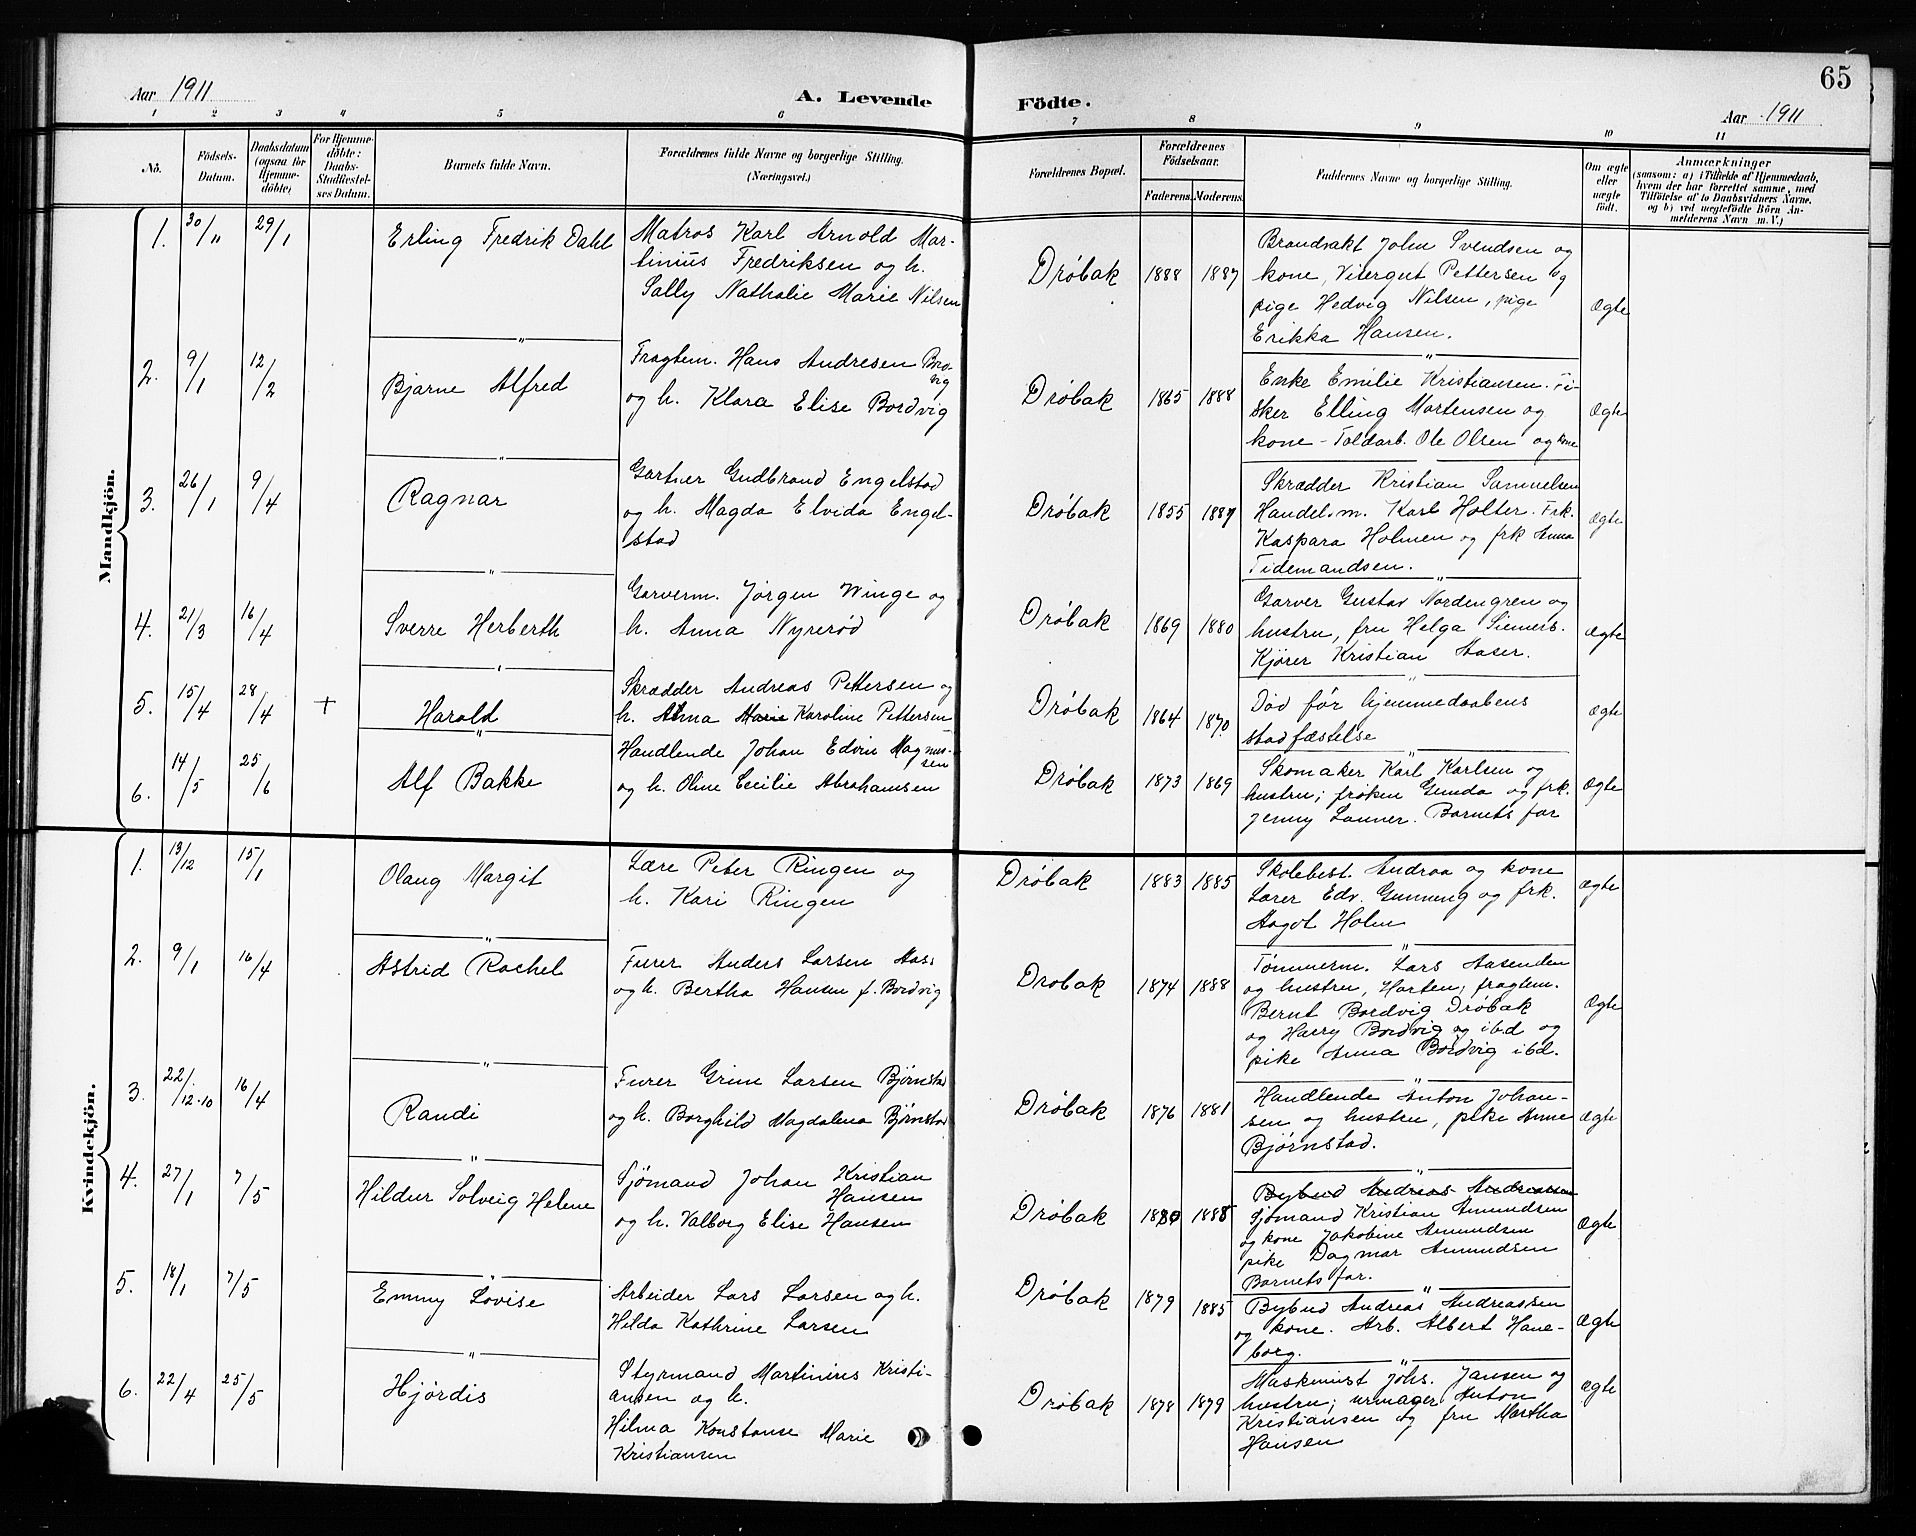 65
Aar 1911
A. Levende Födte.
Aar 1911
1 2 3 4 5 6 7 8 9 10 11
No.
Födsels-Datum.
Daabsdatum (ogsaa for Hjemme-döbte)
For Hjemme-döbte: Daabs-Stadfæstel-ses Datum.
Barnets fulde Navn.
Forældrenes fulde Navne og borgerlige Stilling. (Næringsvei.)
Forældrenes Bopæl.
Forældrenes Födselsaar.
Faderens. Moderens.
Faddernes Navne og borgerlige Stilling.
Om ægte eller uægte født.
Anmærkninger
(saasom: a) i Tilfælde af Hjemmedaab, hvem der har forrettet samme, med Tilföielse af to Daabsvidners Navne. og b) ved uægtefödte Börn An-melderens Navn m. V.)
Mandkjön.
1. 30/11 29/1 Erling Fredrik Dahl
Matros Karl Arnold Mar-
tinius Fredriksen og h.
Sally Nathalie Marie Nilsen
Drøbak 1888 1887
Brandvakt John Svendsen og
kone, Visergut Pettersen og
pige Hedvig Nilsen, pige
Erikka Hansen.
Ægte
2. 9/1 12/2 Bjarne Alfred
Fragtem. Hans Andresen Bordvig
og h. Klara Elise Bordvig
Drøbak 1865 1888
Enke Emilie Kristiansen. Fi-
sker Elling Mortensen og
kone - Toldarb. Ole Olsen og kone
Ægte
3. 26/1 9/4 Ragnar
Gartner Gudbrand Engelstad
og h. Magda Elvida Engel-
stad
Drøbak 1855 1887
Skrædder Kristian Samuelsen
Handelsm. Karl Holter. Frk.
Kaspara Holmen og frk Anna
Tidemandsen.
Ægte
4. 21/3 16/4 Sverre Herberth
Garverm. Jørgen Winge og
h. Anna Nyrerød
Drøbak 1869 1880
Garver Gustav Nordengren og
hustru, fru Helga Siemers.
Kjører Kristian Aaser.
Ægte
5. 15/4 28/4 + Harald
Skrædder Andreas Pettersen og
h. Alma Marie Karoline Pettersen
Drøbak 1864 1870
Død før hjemmedaabens
stadfæstelse
Ægte
6. 14/5 25/6 Alf Bakke
Handlende Johan Edvin Magnussen
og h. Oline Cecilie Abrahamsen
Drøbak 1873 1869
Skomaker Karl Karlsen og
hustru; frøken Gunda og frk.
Jenny Lanner. Barnets far
Ægte
Kvindekjön.
1. 13/12 15/1 Olaug Margit
Lære Peter Ringen og
h. Kari Ringen
Drøbak 1883 1885
Skolebest. Andraa og kone
Lærer Edv. Gunneng og frk.
Aagot Holm
Ægte
2. 9/1 16/4 Astrid Rachel
Furer Anders Larsen Aas
og h. Bertha Hansen f. Bordvig
Drøbak 1874 1888
Tømmerm. Lars Aasenden
og hustru, Horten; fragtem.
Bernt Bordvig Drøbak
og Harry Bordvig og ibd og
pike Anna Bordvig ibd.
Ægte
3. 22/12-10 16/4 Randi
Furer Grim Larsen Bjørnstad
og h. Borghild Magdalena Bjørnstad
Drøbak 1876 1881
Handlende Anton Johan-
sen og hustru, pike Anne
Bjørnstad.
Ægte
4. 27/1 7/5 Hildur Solveig Helene
Sjømand Johan Kristian
Hansen
og h. Valborg Elise Hansen
Drøbak 1880 1888
Bybud Andreas Andreassen
Sjømand Kristian Amundsen
og kone Jakobine Amundsen
pike Dagmar Amundsen
Barnets far.
Ægte
5. 18/1 7/5 Emmy Lovise
Arbeider Lars Larsen og h.
Hilda Kathrine Larsen
Drøbak 1879 1885
Bybud Andreas Andreassen
og kone. Arb. Albert Hane-
borg.
Ægte
6. 22/4 25/5 Hjørdis
Styrmand Martinius Kristi-
ansen og h.
Hilma Konstanse Marie
Kristiansen
Drøbak 1878 1879
Maskinist Johs. Jansen og
hustru; urmager Anton
Kristiansen og fru Martha
Hansen
Ægte